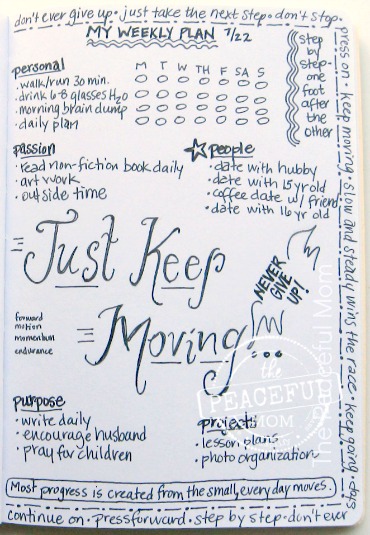 don't ever give up • just take the next step • don't stop •
MY WEEKLY PLAN 7/22
step
by
step.
one
foot
after
the
other
press on • keep moving • slow and steady wins the race • keep going • days
personal
M T W TH F SA S
• walk/run 30 min.
• drink 6-8 glasses H2O
• morning brain dump
• daily plan
passion
• read non-fiction book daily
• art work
• outside time
people
• date with hubby
• date with 15 yr old
• coffee date w/ friend
• date with 16 yr old
Just Keep
Moving...
NEVER
GIVE
UP!
forward
motion
momentum
endurance
the
PEACEFUL
MOM
The Peaceful Mom
purpose
• write daily
• encourage husband
• pray for children
projects
• lesson plans
• photo organization
Most progress is created from the small, every day moves.
continue on • press forward • step by step • don't ever